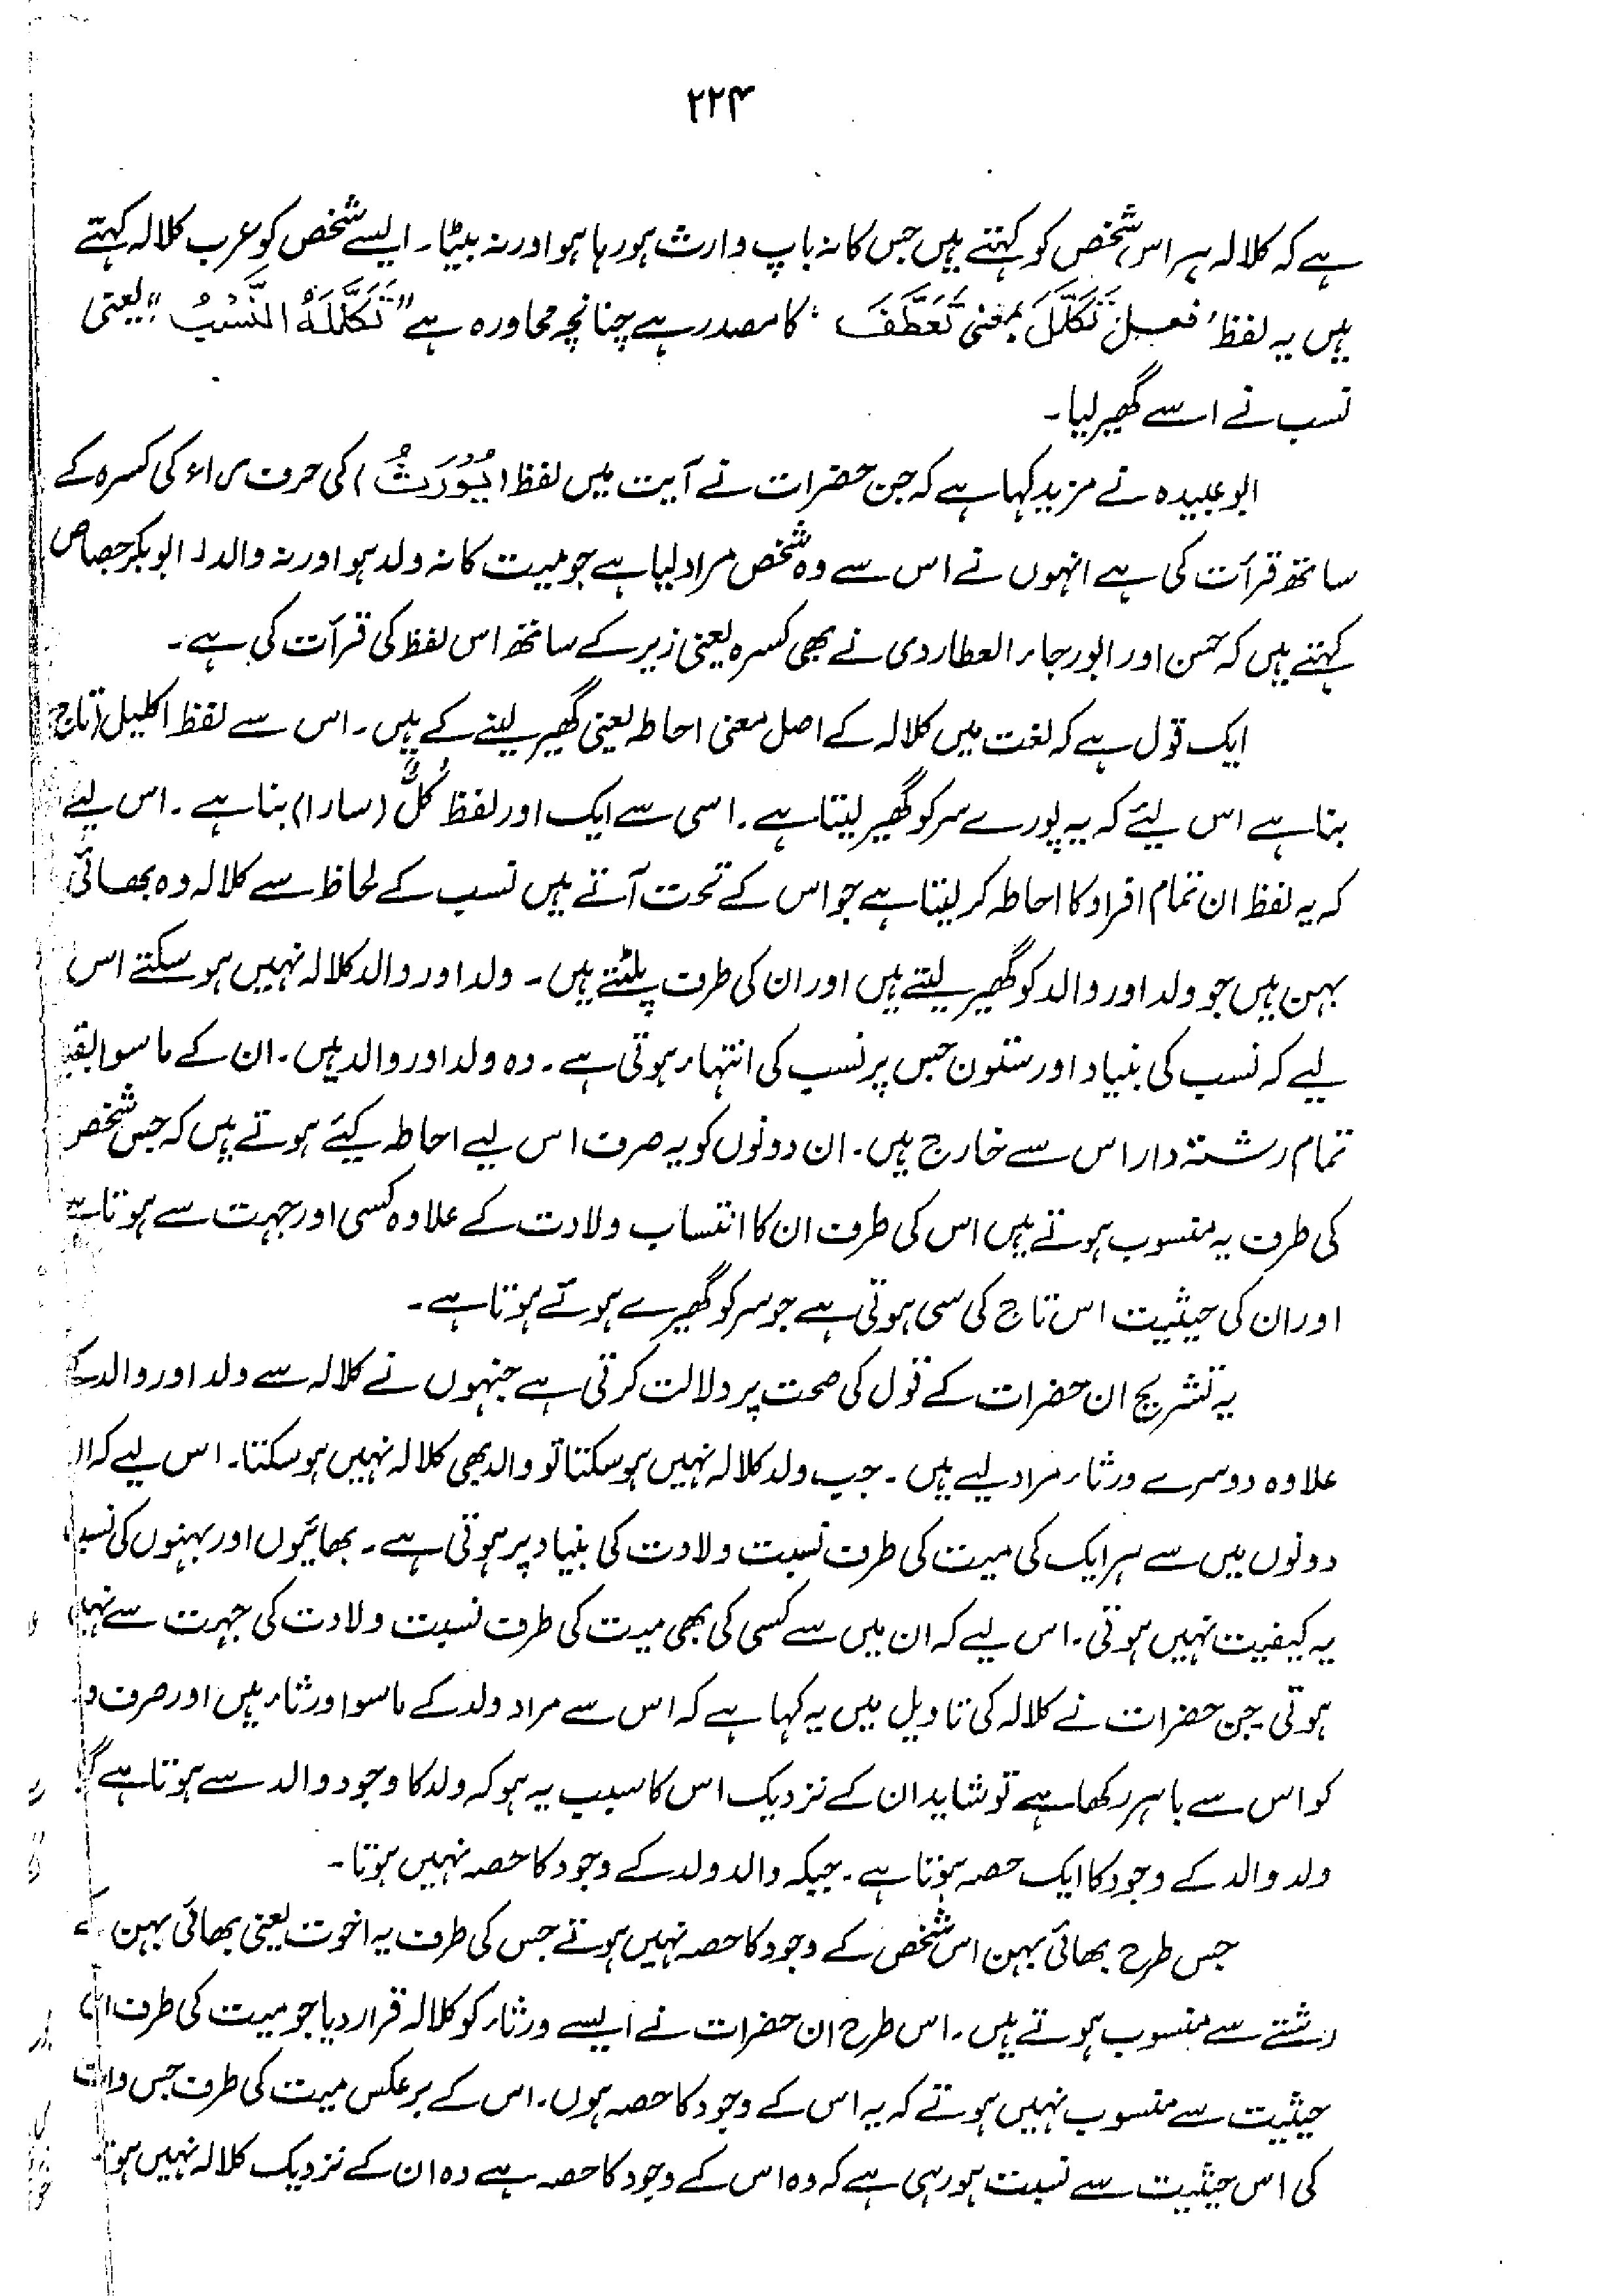 ۲۲۴
ہے کہ کلالہ ہر اس شخص کو کہتے ہیں جس کا نہ باپ وارث ہو رہا ہو اور نہ بیٹا۔ ایسے شخص کو عرب کلالہ کہتے
ہیں یہ لفظ' فعل تَکَلَّلَ بمعنی تَعَطَّفَ' کا مصدر ہے چنانچہ محاورہ ہے "تَکَلَّلَهُ النَّسَبُ" یعنی
نسب نے اسے گھیر لیا۔
ابو عبیدہ نے مزید کہا ہے کہ جن حضرات نے آیت میں لفظ (یُوْرَثُ) کی حرف راء کی کسرہ کے
ساتھ قرآت کی ہے انہوں نے اس سے وہ شخص مراد لیا ہے جو میت کا نہ ولد ہو اور نہ والد۔ ابو بکر جصاص
کہتے ہیں کہ حسن اور ابو رجاء العطاردی نے بھی کسرہ یعنی زیر کے ساتھ اس لفظ کی قرآت کی ہے۔
ایک قول ہے کہ لغت میں کلالہ کے اصل معنی احاطہ یعنی گھیر لینے کے ہیں۔ اس سے لفظ اکلیل (تاج)
بنا ہے اس لیئے کہ یہ پورے سر کو گھیر لیتا ہے۔ اسی سے ایک اور لفظ کُلٌّ (سارا) بنا ہے۔ اس لیے
کہ یہ لفظ ان تمام افراد کا احاطہ کر لیتا ہے جو اس کے تحت آتے ہیں نسب کے لحاظ سے کلالہ وہ بھائی
بہن ہیں جو ولد اور والد کو گھیر لیتے ہیں اور ان کی طرف پلٹتے ہیں۔ ولد اور والد کلالہ نہیں ہو سکتے اس
لیے کہ نسب کی بنیاد اور ستون جس پر نسب کی انتہاء ہوتی ہے۔ وہ ولد اور والد ہیں۔ ان کے ماسوا
تمام رشتہ دار اس سے خارج ہیں۔ ان دونوں کو یہ صرف اس لیے احاطہ کیئے ہوتے ہیں کہ جس شخص
کی طرف یہ منسوب ہوتے ہیں اس کی طرف ان کا انتساب ولادت کے علاوہ کسی اور جہت سے ہوتا ہے
اور ان کی حیثیت اس تاج کی سی ہوتی ہے جو سر کو گھیرے ہوئے ہوتا ہے۔
یہ تشریح ان حضرات کے قول کی صحت پر دلالت کرتی ہے جنہوں نے کلالہ سے ولد اور والد کے
علاوہ دوسرے ورثاء مراد لیے ہیں۔ جب ولد کلالہ نہیں ہو سکتا تو والد بھی کلالہ نہیں ہو سکتا۔ اس لیے کہ
دونوں میں سے ہر ایک کی میت کی طرف نسبت ولادت کی بنیاد پر ہوتی ہے۔ بھائیوں اور بہنوں کی
یہ کیفیت نہیں ہوتی۔ اس لیے کہ ان میں سے کسی کی بھی میت کی طرف نسبت ولادت کی جہت سے نہیں
ہوتی۔ جن حضرات نے کلالہ کی تاویل میں یہ کہا ہے کہ اس سے مراد ولد کے ماسوا ورثاء ہیں اور صرف
کو اس سے باہر رکھا ہے تو شاید ان کے نزدیک اس کا سبب یہ ہو کہ ولد کا وجود والد سے ہوتا ہے
ولد والد کے وجود کا ایک حصہ ہوتا ہے۔ جبکہ والد ولد کے وجود کا حصہ نہیں ہوتا۔
جس طرح بھائی بہن اس شخص کے وجود کا حصہ نہیں ہوتے جس کی طرف یہ اخوت یعنی بھائی بہن کے
رشتے سے منسوب ہوتے ہیں۔ اس طرح ان حضرات نے ایسے ورثاء کو کلالہ قرار دیا جو میت کی طرف اس
حیثیت سے منسوب نہیں ہوتے کہ یہ اس کے وجود کا حصہ ہوں۔ اس کے برعکس میت کی طرف جس وارث
کی اس حیثیت سے نسبت ہو رہی ہے کہ وہ اس کے وجود کا حصہ ہے وہ ان کے نزدیک کلالہ نہیں ہوتا